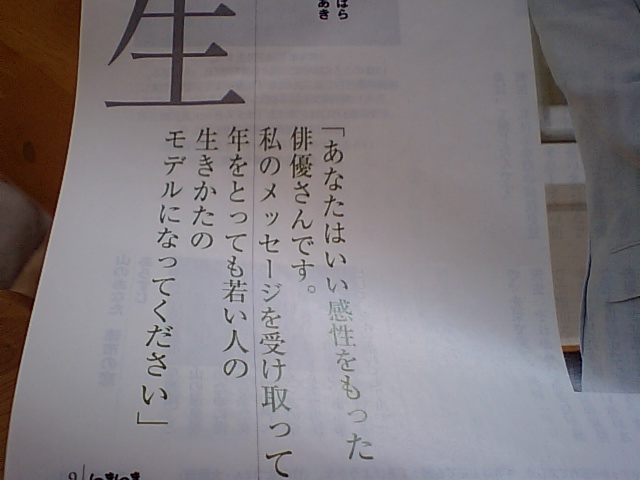 はら
あき
生
「あなたはいい感性をもった
俳優さんです。
私のメッセージを受け取って
年をとっても若い人の
生きかたの
モデルになってください」
9